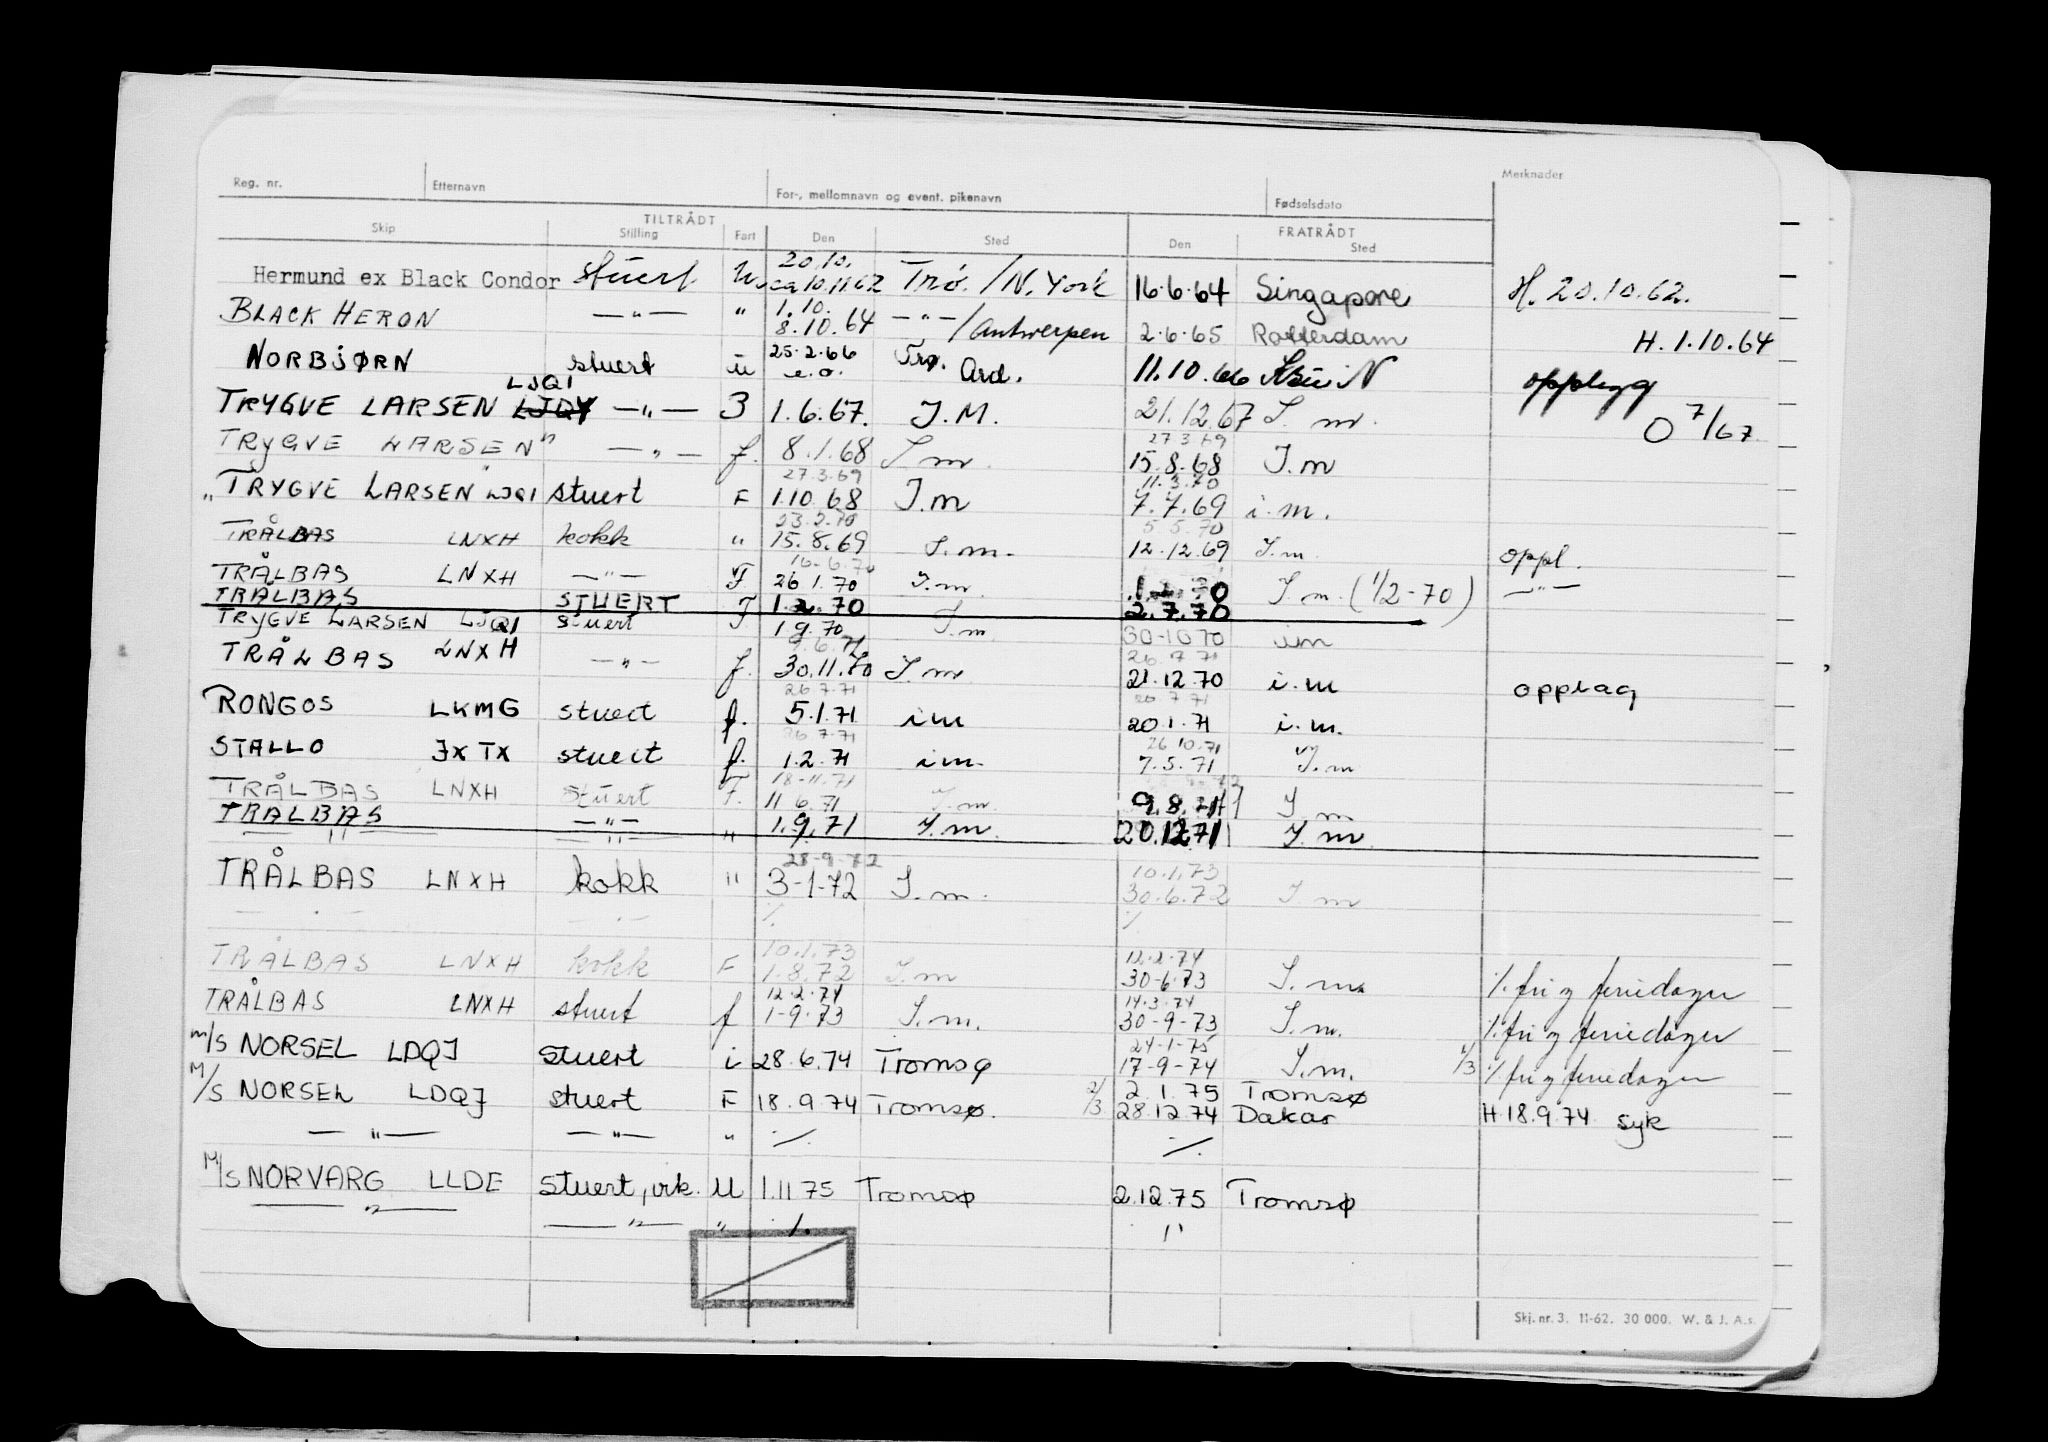 Reg. nr. Etternavn For-, mellomnavn og event. pikenavn Fødselsdato Merknader
TILTRÅDT FRATRÅDT
Skip Stilling Fart Den Sted Den Sted
20.10.
Hermund ex Black Condor stuert U ca 10.11.62 Trø. / N. York 16.6.64 Singapore H. 20.10.62.
1.10.
BLACK HERON — " — " 8.10.64 — " — / Antwerpen 2.6.65 Rotterdam H. 1.10.64
NORBJØRN stuert u 25.2.66 Trø. 11.10.66 N opplegg
e.o. Ard.
LJQI
TRYGVE LARSEN LJQY — " — 3 1.6.67. I.M. 21.12.67 I. m. O 7/67
27 3 69
TRYGVE LARSEN " — " — f. 8.1.68 I m. 15.8.68 I.m
27.3.69 11.3.70
" TRYGVE LARSEN LJQI stuert F 1.10.68 I.m 7.7.69 i.m.
23.2.70 5 5.70
TRÅLBAS LNXH kokk " 15.8.69 I.m. 12.12.69 I.m. oppl.
16-6.70
TRÅLBAS LNXH — " — F 26 1.70 I.m. I.m. (1/2-70) — " —
TRÅLBAS STUERT F 1.2.70 2.7.70
TRYGVE LARSEN LJQI stuert 1 9.70 I.m. 30-10 70 im
9.6.71 26.7 71
TRÅLBAS LNXH — " — f. 30.11.70 I m 21.12.70 i.m opplag
26 7.71 26 7 71
RONGOS LKMG stuert f. 5.1.71 im 20.1.71 i.m.
26.7.71 26 10.71
STALLO JXTX stuert f. 1.2.71 im. 7.5.71 I.m
18-11.71
TRÅLBAS LNXH stuert F. 11 6.71 I.m. 9.8.71 I.m
TRALBAS — " — " 1.9.71 I.m. 20.12.71 I.m
28-9-72 10.1.73
TRÅLBAS LNXH kokk " 3-1-72 I.m. 30.6.72 I m
— " — — " — % %
10.1.73 12.2.74
TRÅLBAS LNXH kokk F 1.8.72 I.m 30-6-73 I.m. % fri og feriedager
12.2.74 14.3.74
TRÅLBAS LNXH stuert f 1-9-73 I.m. 30-9-73 I.m. % fri og feriedager
24-1-75
m/s NORSEL LDQJ stuert i 28.6.74 Tromsø 17-9-74 I.m. 1/3 % fri og feriedager
2.1.75 Tromsø
M/S NORSEL LDQJ stuert F 18.9.74 Tromsø. 2/3 28.12.74 Dakar H 18.9.74 syk
— " — — " — " % %
M/S NORVARG LLDE stuert, vik. U 1.11 75 Tromsø 2.12.75 Tromsø
— " — — " — " % "
Skj. nr. 3. 11-62. 30 000. W. & J. A.s.